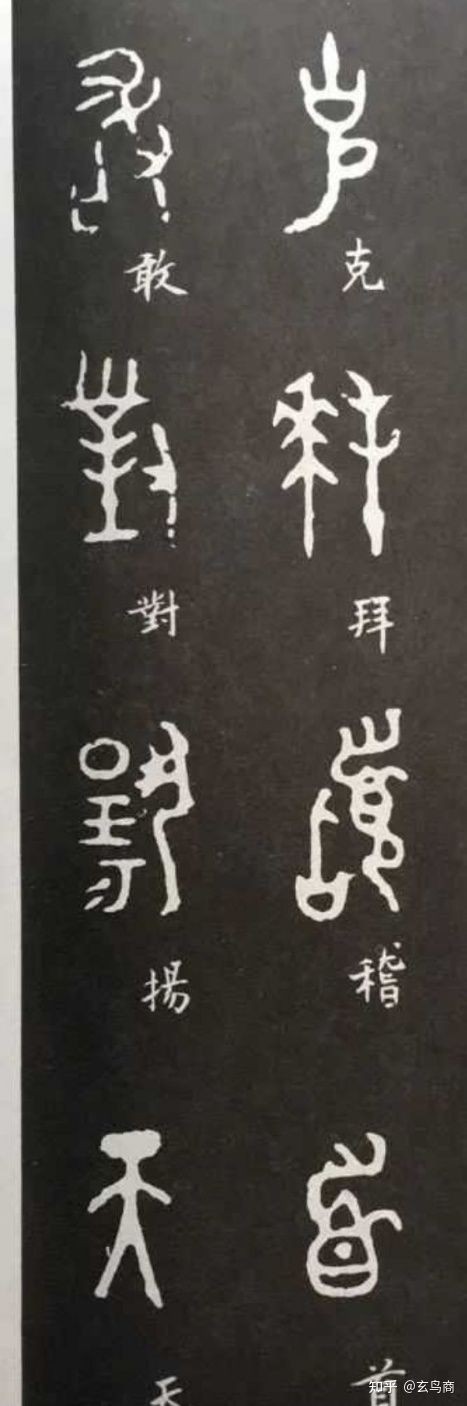 克拜稽首
敢對揚天
知乎 @玄鸟商